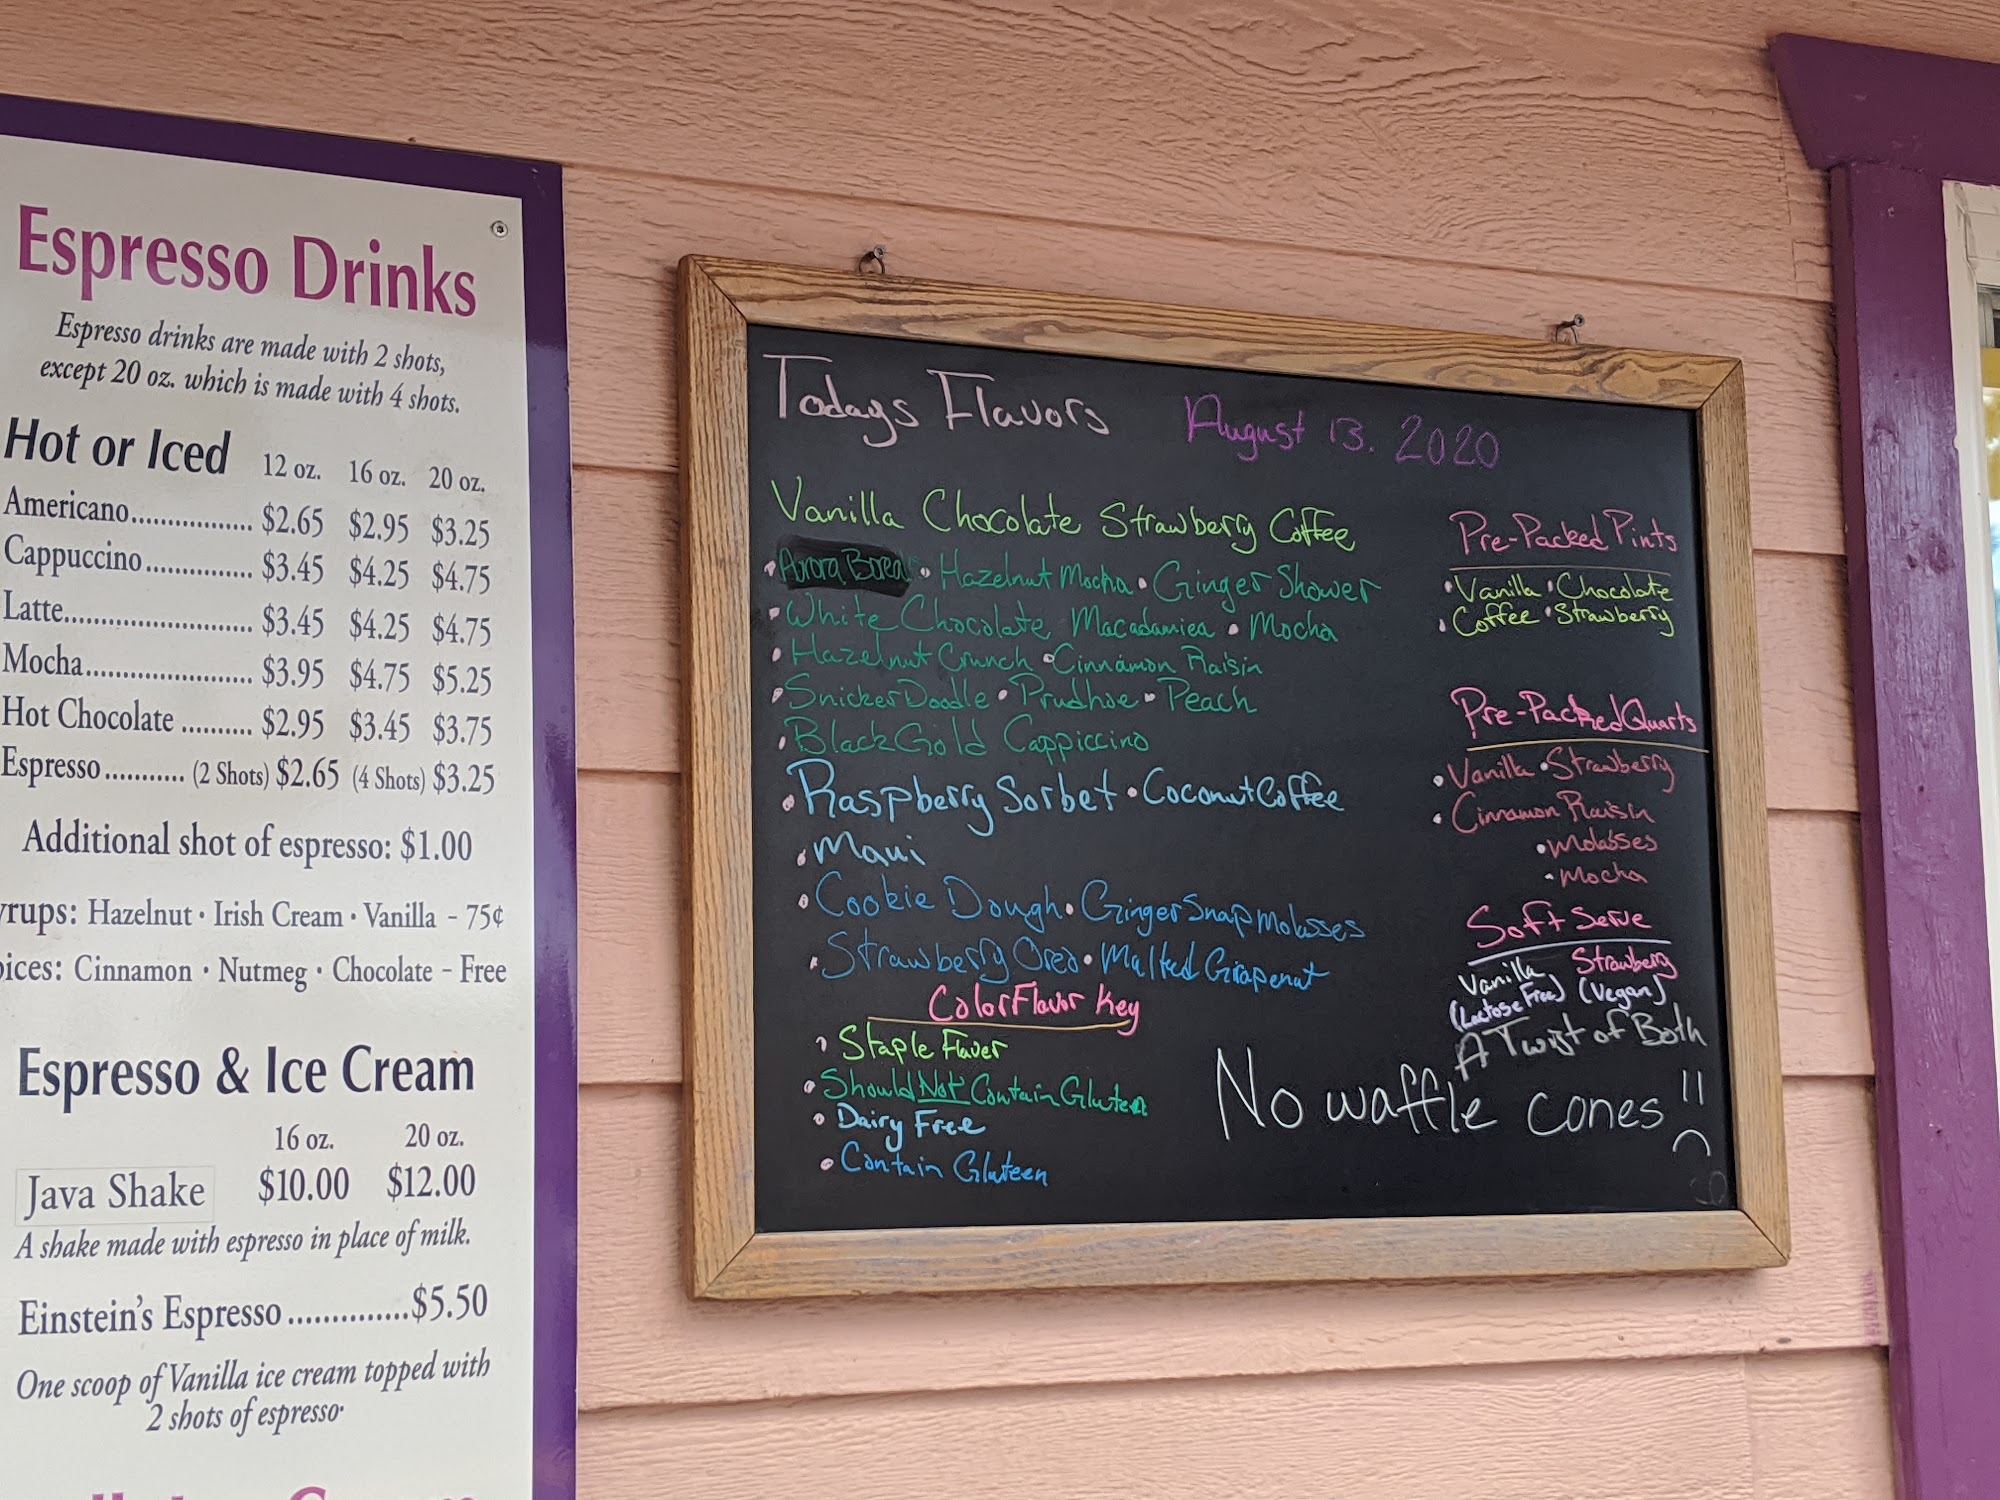 Espresso Drinks
Espresso drinks are made with 2 shots,
except 20 oz. which is made with 4 shots.
Hot or Iced 12 oz. 16 oz. 20 oz.
Americano................. $2.65 $2.95 $3.25
Cappuccino............... $3.45 $4.25 $4.75
Latte............................ $3.45 $4.25 $4.75
Mocha......................... $3.95 $4.75 $5.25
Hot Chocolate .......... $2.95 $3.45 $3.75
Espresso ........... (2 Shots) $2.65 (4 Shots) $3.25
Additional shot of espresso: $1.00
yrups: Hazelnut · Irish Cream · Vanilla - 75¢
ices: Cinnamon · Nutmeg · Chocolate - Free
Espresso & Ice Cream
16 oz. 20 oz.
Java Shake $10.00 $12.00
A shake made with espresso in place of milk.
Einstein's Espresso ..............$5.50
One scoop of Vanilla ice cream topped with
2 shots of espresso
Todays Flavors August 13. 2020
Vanilla Chocolate Strawberry Coffee
• Hazelnut Mocha • Ginger Shower
• White Chocolate Macadamiea • Mocha
• Hazelnut Crunch • Cinnamon Raisin
• SnickerDoodle • Prudhoe • Peach
• Black Gold Cappiccino
• Raspberry Sorbet • Coconut Coffee
• Maui
• Cookie Dough • Ginger Snap Molasses
• Strawberry Oreo • Malted Grapenut
Color Flavor Key
• Staple Flaver
• Should Not Contain Gluten
• Dairy Free
• Contain Gluteen
Pre-Packed Pints
• Vanilla • Chocolate
• Coffee • Strawberry
Pre-Packed Quarts
• Vanilla • Strawberry
• Cinnamon Raisin
• Molasses
• Mocha
Soft Serve
Vanilla Strawberry
(Lactose Free) (Vegan)
A Twist of Both
No waffle cones !!